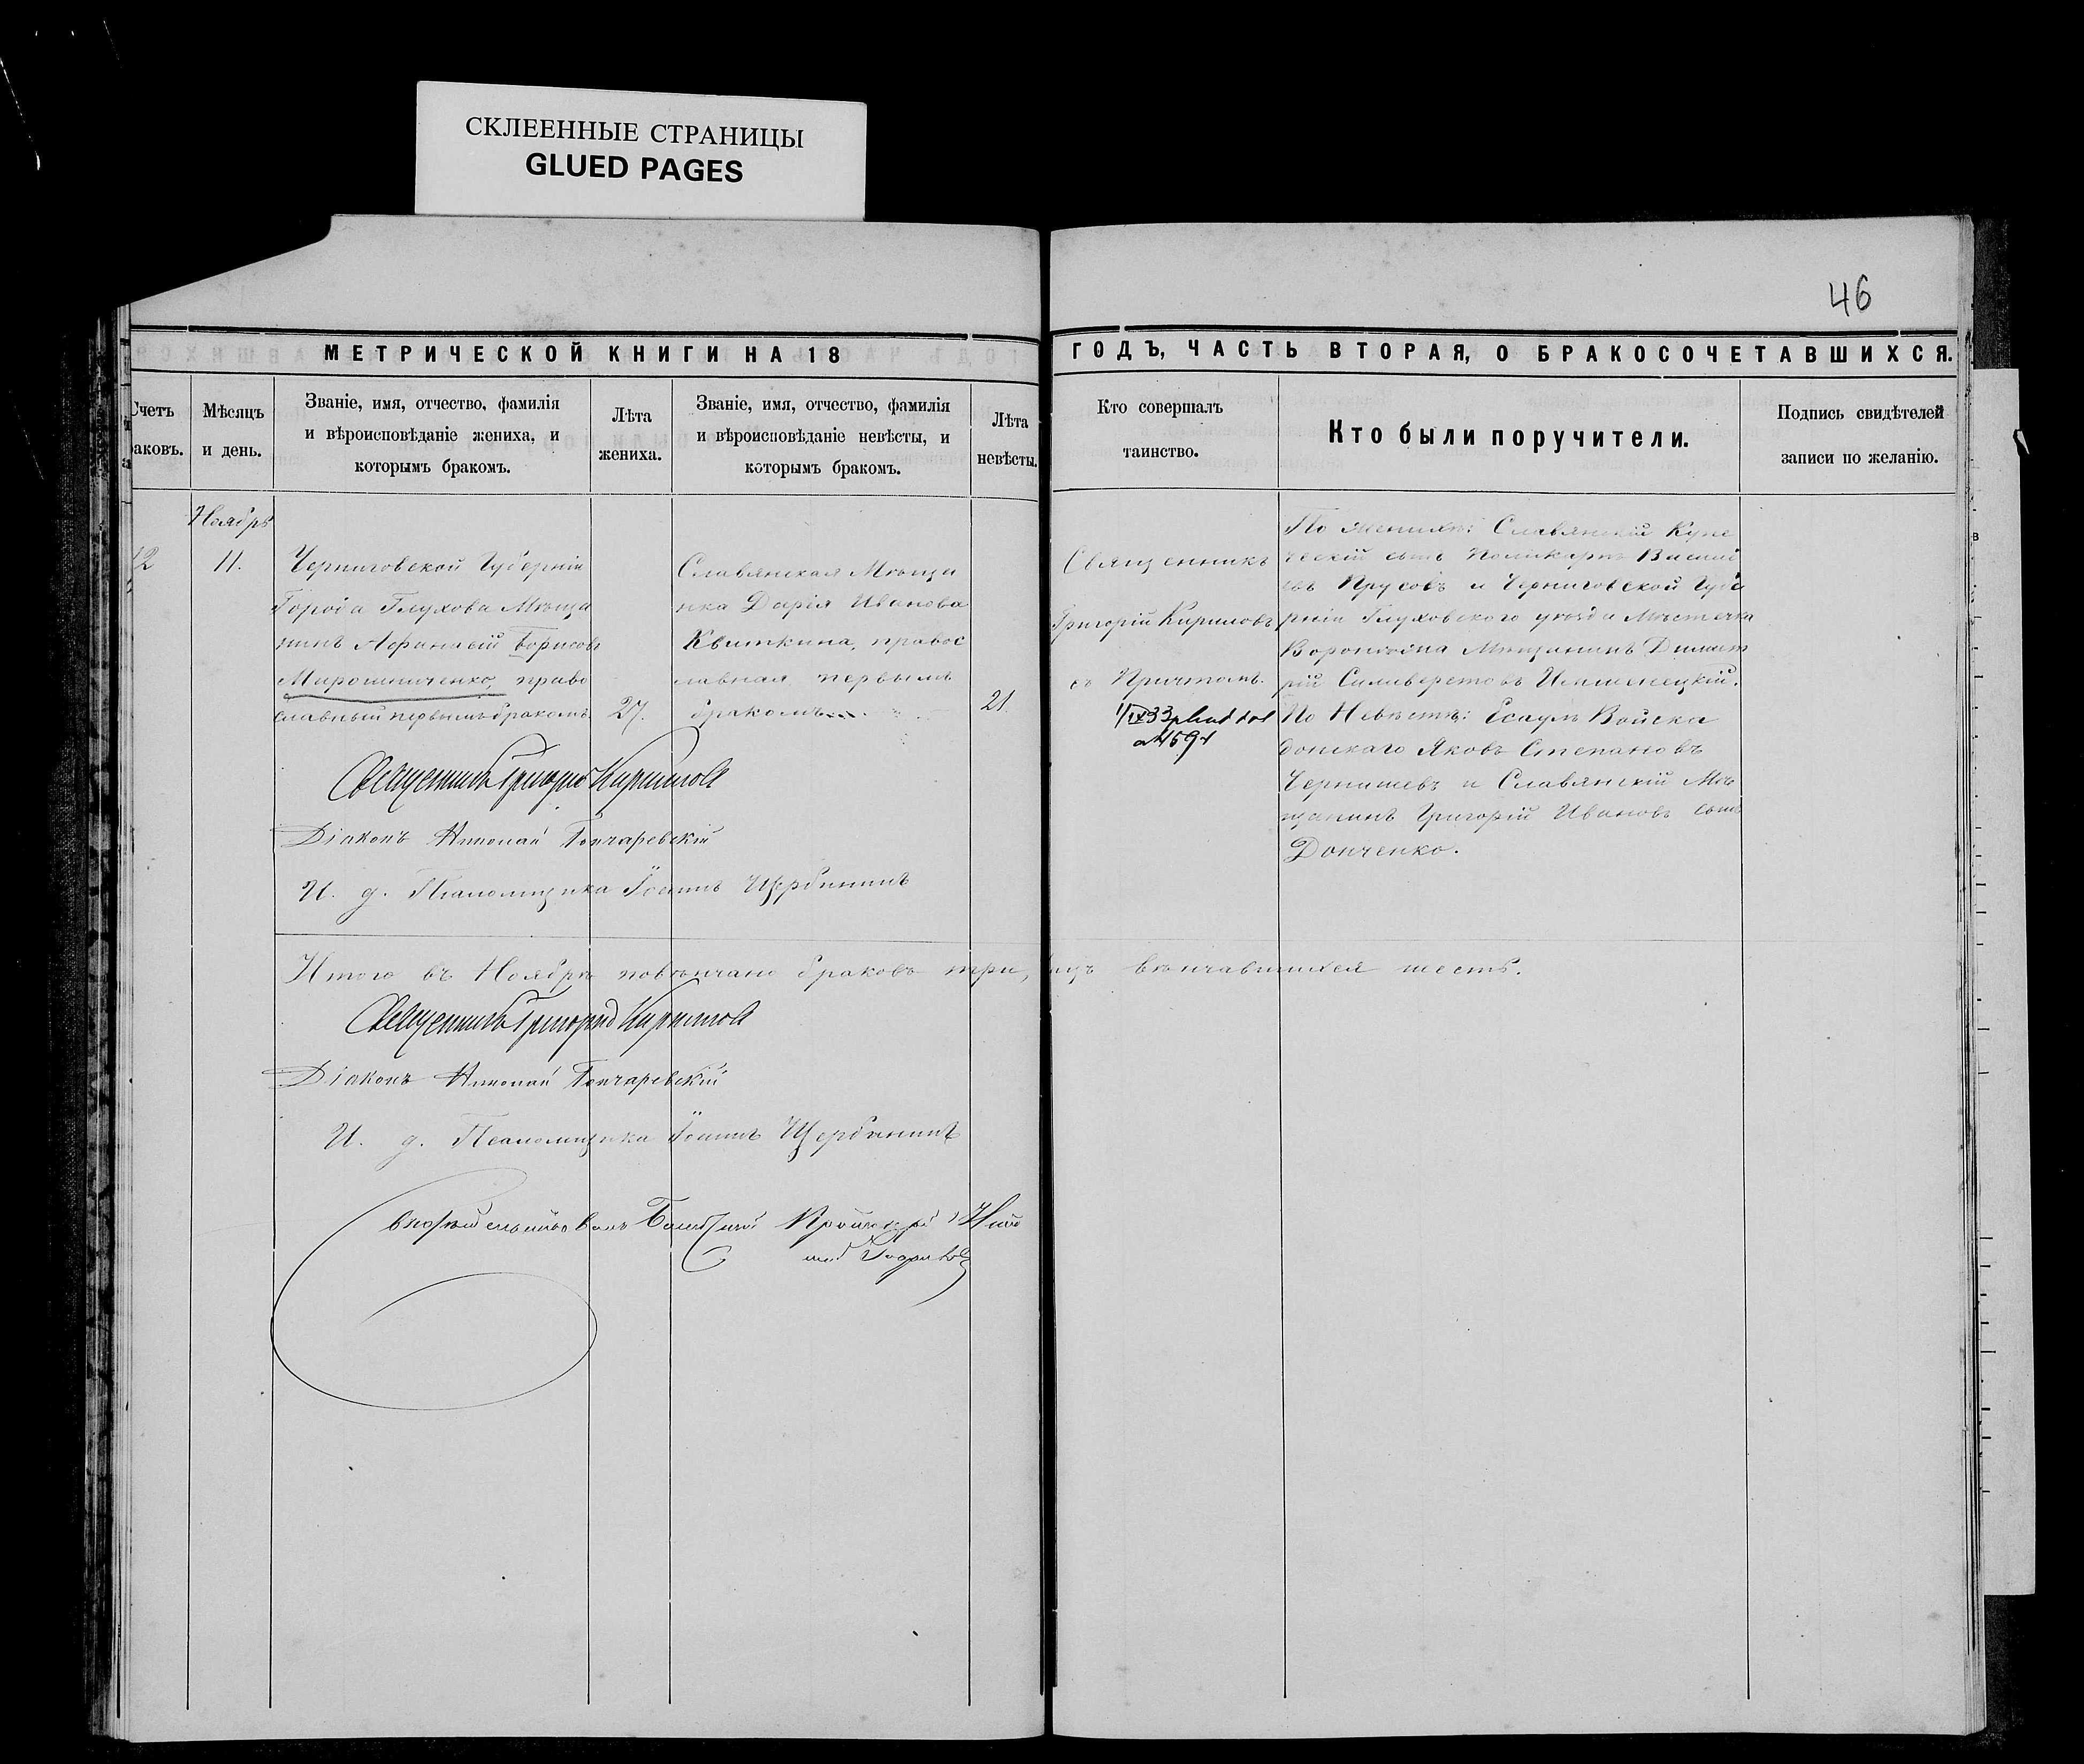 СКЛЕЕННЫЕ СТРАНИЦЫ
GLUED PAGES
46
МЕТРИЧЕСКОЙ КНИГИ НА 18
ГОДЪ, ЧАСТЬ ВТОРАЯ, О БРАКОСОЧЕТАВШИХСЯ.
Счетъ
браковъ.
Мѣсяцъ
и день.
Званіе, имя, отчество, фамилія
и вѣроисповѣданіе жениха, и
которымъ бракомъ.
Лѣта
жениха.
Званіе, имя, отчество, фамилія
и вѣроисповѣданіе невѣсты, и
которымъ бракомъ.
Лѣта
невѣсты.
Кто совершалъ
таинство.
Кто были поручители.
Подпись свидѣтелей
записи по желанію.
Ноябрь
12
11.
Черниговской Губерніи
Города Глухова Мѣща
нинъ Афанасій Борисовъ
Мирошниченко, право
славный первымъ бракомъ.
27.
Славянская Мѣща
нка Дарія Иванова
Квиткина, правос
лавная, первымъ
бракомъ
21.
Священникъ
Григорій Кириловъ
съ Причтомъ.
По женихѣ: Славянскій Купе
ческій сынъ Поликарпъ Васильевъ
Прусовъ и Черниговской Губе
рніи Глуховского уѣзда Мѣстечка
Воронежа Мѣщанинъ Димит
рій Силиверстовъ
По Невѣстѣ: Есаулъ Войска
донскаго Яковъ Степановъ
Чернышевъ и Славянскій Мѣ
щанинъ Григорій Ивановъ сынъ
Донченко.
Священникъ Григорій Кириловъ
Діаконъ Николай Гончаревскій
И. д. Псаломщика Іоаннъ Щербининъ
Итого въ Ноябрѣ повѣнчано браковъ три, лицъ вѣнчавшихся шесть.
Священникъ Григорій Кириловъ
Діаконъ Николай Гончаревскій
И. д. Псаломщика Іоаннъ Щербининъ